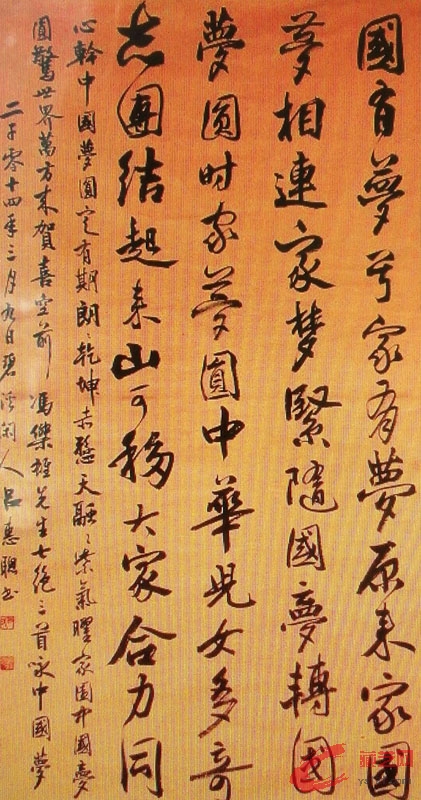 國有夢兮家有夢原来家國
夢相連家梦緊隨國夢轉國
夢圓时家夢圓中華兒女多奇
志團结起来山可移大家合力同
心幹中國夢圓定有期朗々乾坤赤天融々紫氣曜家园中國夢
圓驚世界萬方来賀喜空前 馮傑雄先生七绝三首咏中國夢
二千零十四年三月九日碧溪闲人吕惠聪书